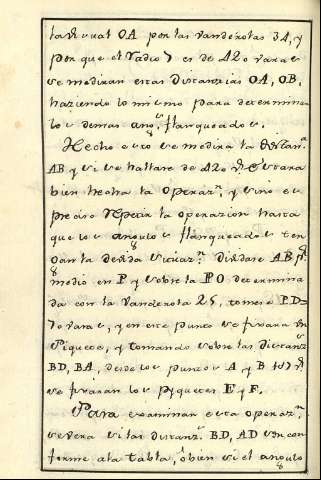 tará qual OA por las vanderolas 34, y
por que el Radio 7 es de 420 varas
se mediran estas distanzias OA, OB,
haziendo lo mismo para determinar
los demas angs flanqueados.
Hecho esto se medira la distanª
AB, y si se hallare de 420 Vs estara
bien hecha la operazn, y sino es
preciso repetir la operazion hasta
que los angulos flanqueados ten
gan la devida situazn. Dividase AB pr
medio en P y sobre la PO determina
da con la vanderola 25, tomese PD=
70 varas, y en este punto se fixara vn
Piquete, y tomando sobre las distanzs
BD, BA, desde los puntos A y B
se fixaran los pyquetes E y F.
Para examinar esta operazn
se vera si las distanzs BD, AD son con
forme a la tabla, ô bien si el angulo